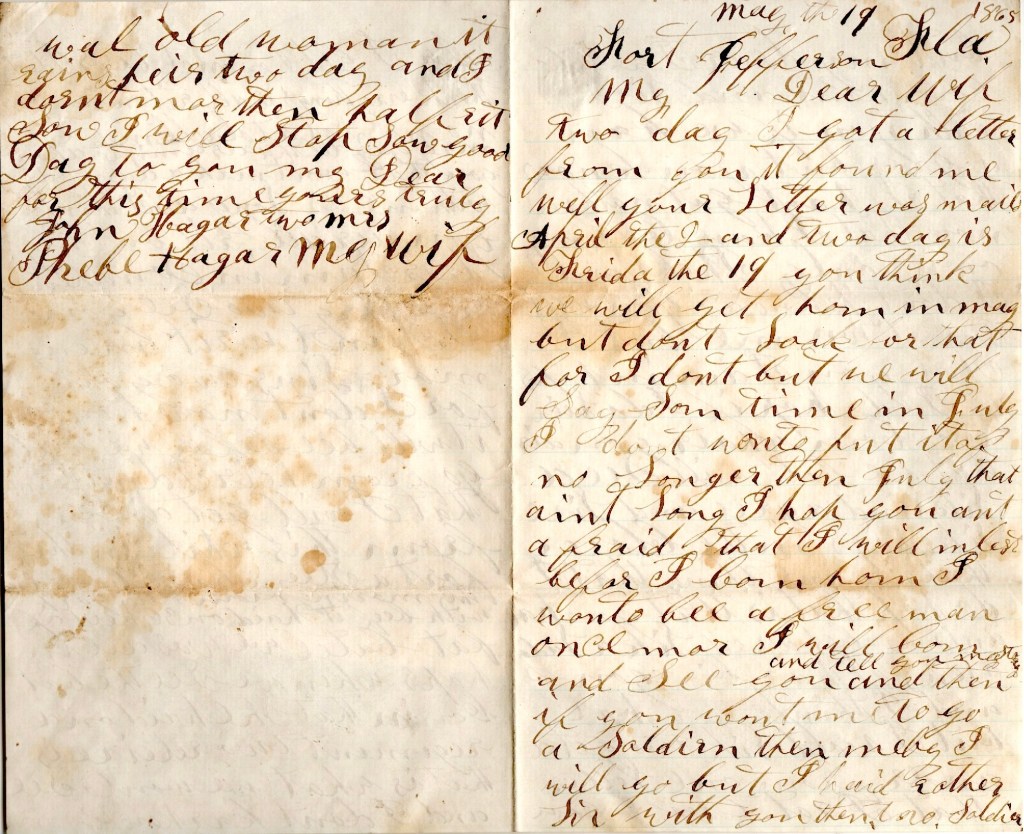 may th 19 1865
Fort Jefferson Fla
My Dear Wif
two day I got a letter
from you it found me
well your Letter was maild
April the 2 and two day is
Frida the 19 you think
we will get hom in may
but dont Look for hit
for I dont but we will
Say Som time in July
I dont wonte put it of
no Longer then July that
aint Long I hop you ant
a fraid that I will inlist
befor I bom hom I
wonto bee a free man
once mor I will bom
and tell you
and See you and then
if you wont me to go
a Soldirn then meby I
will go but I haid rother
Liv with you then to Soldier
wal old woman it
rains heir two day and I
dornt mor then half rit
Sow I will Stop Sow good
Day to you my Dear
for this time yours truly
John Hagar two mrs
Phebe Hagar My Wif